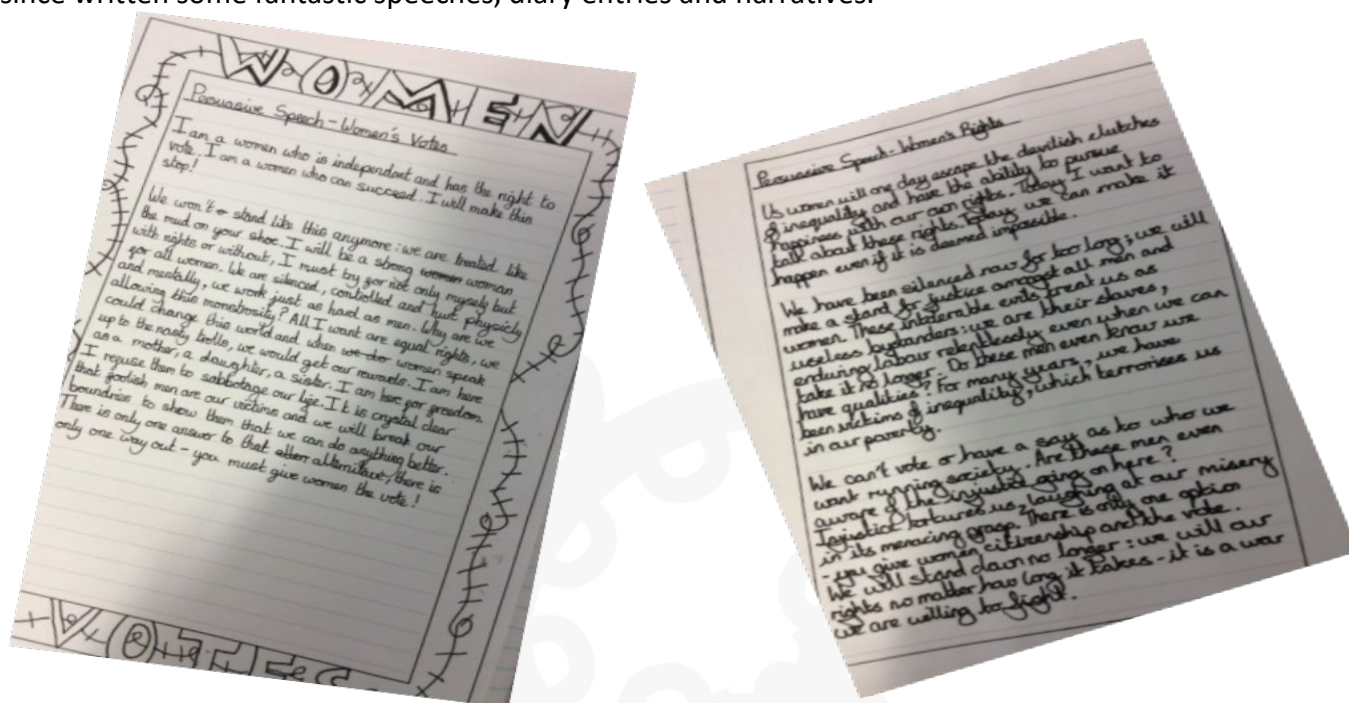 since written some fantastic speeches, diary entries and narratives.
WOMEN
Persuasive Speech - Women's Votes
I am a women who is independant and has the right to
vote. I am a women who can succeed. I will make this
stop!
We won't stand like this anymore: we are treated like
the mud on your shoe. I will be a strong women woman
with rights or without, I must try for not only myself but
for all women. We are silenced, controlled and hurt physicly
and mentally, we work just as hard as men. Why are we
allowing this monstrosity? All I want are equal rights, we
could change this world and when we do women speak
up to the nasty trolls, we would get our rewards. I am here
as a mother, a daughter, a sister. I am here for freedom.
I refuse them to sabbotage our life. It is crystal clear
that foolish men are our victims and we will break our
boundries to show them that we can do anything better.
There is only one answer to that alternitave, there is
only one way out - you must give women the vote!
VOTES
Persuasive Speech - Women's Rights
Us women will one day escape the devilish clutches
of inequality and have the ability to pursue
happiness with our own rights. Today I want to
talk about these rights. Today we can make it
happen even if it is deemed impossible.
We have been silenced now for too long; we will
make a stand for justice amongst all men and
women. These intolerable evils treat us as
useless bystanders: we are their slaves,
enduring labour relentlessly even when we can
take it no longer. Do these men even know we
have qualities? For many years, we have
been victims of inequality, which terrorises us
in our poverty.
We can't vote or have a say as to who we
want running society. Are these men even
aware of the injustice going on here?
Injustice tortures us, laughing at our misery
in its menacing grasp. There is only one option
- you give women citizenship and the vote.
We will stand down no longer: we will our
rights no matter how long it takes - it is a war
we are willing to fight.